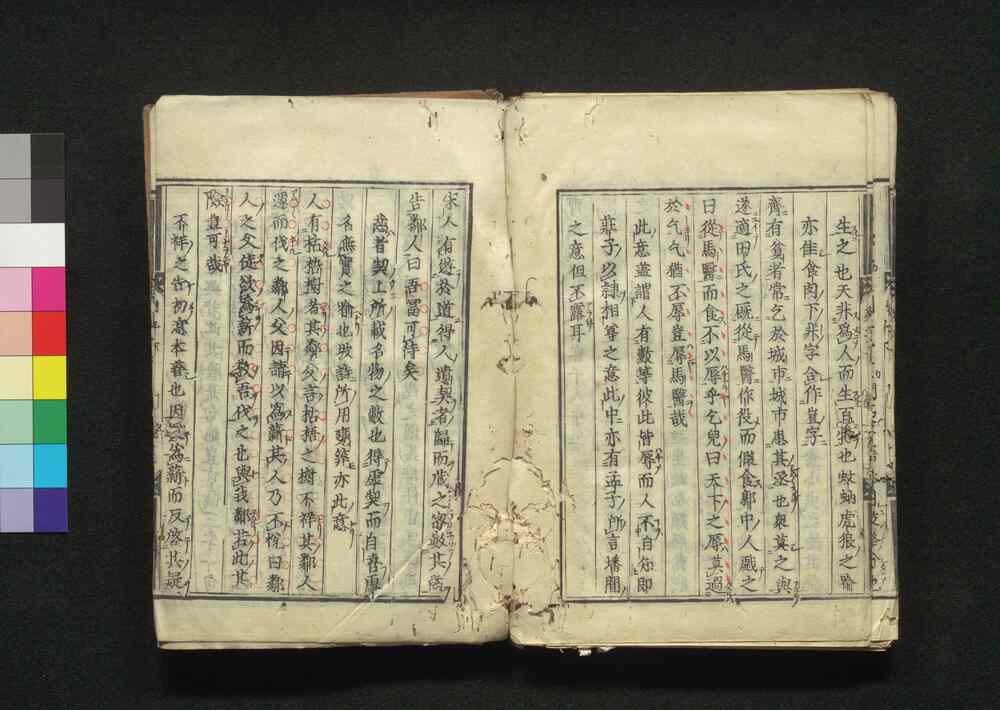 生之也天非爲人而生百物也蚊蚋虎狼之喻
亦佳食肉下非字合作豈字
齊有貧者常乞於城市城市患其亟也衆莫之與
遂適田氏之廐從馬醫作役而假食郭中人戲之
曰從馬醫而食不以辱乎乞兒曰天下之辱莫過
於乞乞猶不辱豈辱馬醫哉
此意蓋謂人有數等彼此皆辱而人不自知即
莊子以隷相尊之意此中亦有孟子所言墦間
之意但不露耳
宋人有遊於道得人遺契者歸而藏之密數其齒
告鄰人曰吾冨可待矣
齒者契上所載名物之數也得虛契而自喜
名無實之喻也坡詩所用
人有枯梧樹者其鄰父言枯梧之樹不祥其鄰人
遽而伐之鄰人父因請以爲薪其人乃不悅曰鄰
人之父徒欲爲薪而敎吾伐之也與我鄰若此其
險豈可哉
不祥之告初意本善也因以爲薪而反啓其疑